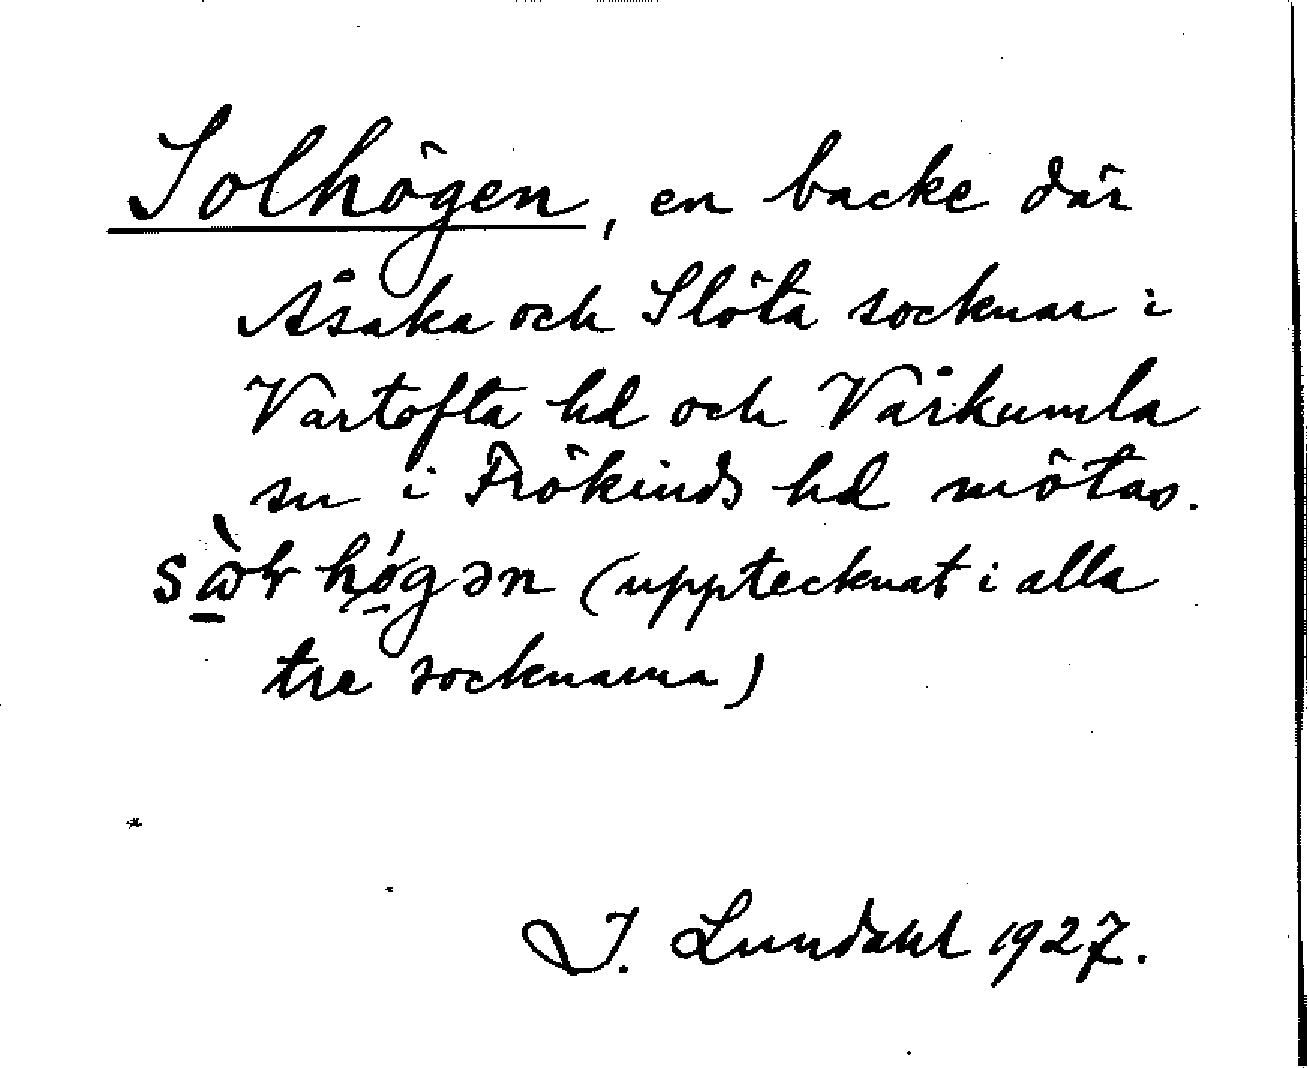 Solhögen, en backe där
Åsaka och Slöta socknar i
Vartofta hd och Vårkumla
sn i Frökinds hd mötas.
(upptecknat i alla
tre socknarna)
I. Lundahl 1927.